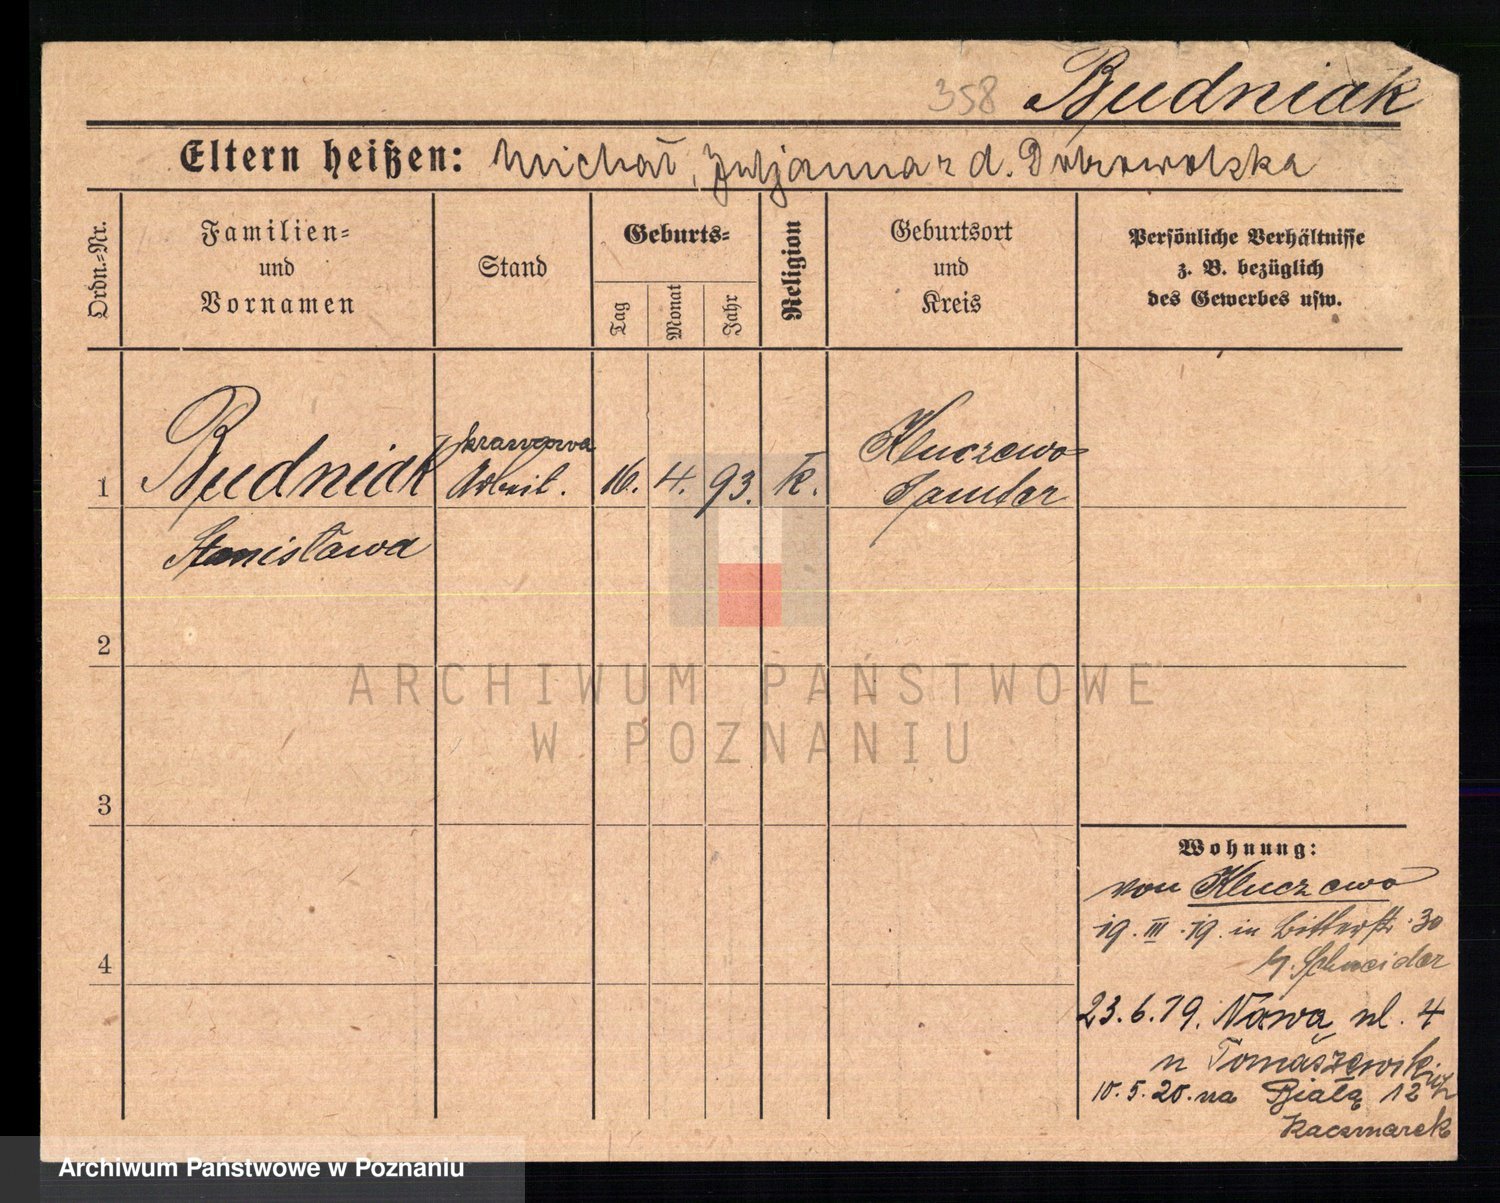 358 Budniak
Eltern heißen: Michał, Juljanna z d. Dobrowolska
Ordn.-Nr.
Familien-
und
Vornamen
Stand
Geburts-
Tag
Monat
Jahr
Religion
Geburtsort
und
Kreis
Persönliche Verhältnisse
z. B. bezüglich
des Gewerbes usw.
1 Budniak
Stanisława
krawcowa
Arbeit.
16. 4. 93. k.
Kluczewo
Samter
2
3
4
Wohnung:
von Kluczewo
19. III. 19. in Bitterstr. 30
b. Schneider
23. 6. 19. Nowa ul. 4
u Tomaszewski
10. 5. 20. na Białą 12
Kaczmarek
ARCHIWUM PAŃSTWOWE
W POZNANIU
Archiwum Państwowe w Poznaniu